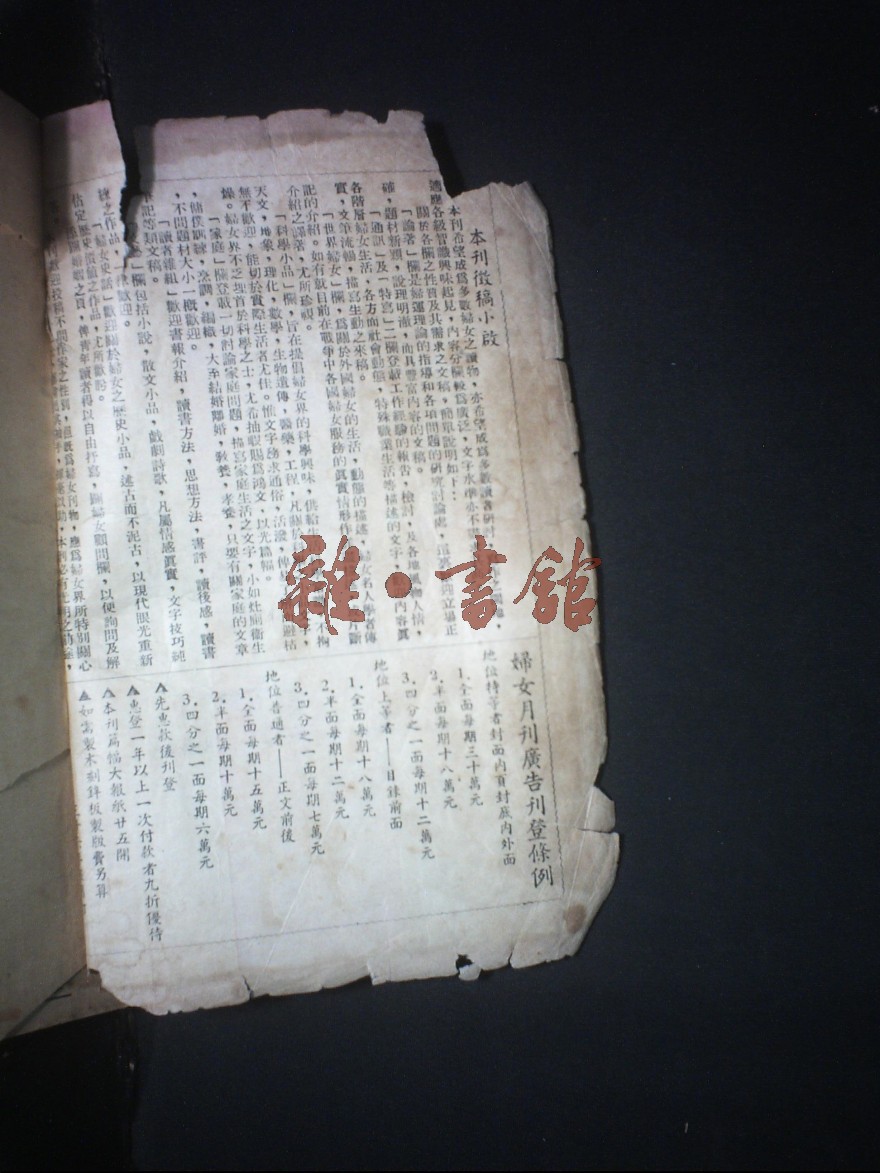 本刊徵稿小啟
本刊希望成爲多數婦女之讀物，亦希望成爲多數讀者研
適應各級智識興味起見，內容分欄較爲廣泛，文字水準亦不
關於各欄之性質及其需求之文稿，簡單說明如下：
「論著」欄是婦運理論的指導和各項問題的研究討論處，立場正
確，題材新穎，說理明澈，而具豐富內容的文稿。
「通訊」及「特寫」二欄登載工作經驗的報告，檢討，及各地人情，
各階層婦女生活，各方面社會動態，特殊職業生活等描述的文字，內容眞
實，文筆流暢，描寫生動之來稿。
「世界婦女」欄，爲關於外國婦女的生活，動態的描述，婦女名人學者傳
記的介紹。如有就目前在戰爭中各國婦女服務的眞實情形作片斷
介紹之譯著，尤所珍視。
「科學小品」欄，旨在提倡婦女界的科學興味，供給生不拘
天文，地象，理化，數學，生物遺傳，醫藥，工程，凡關於字，
無不歡迎，能切於實際生活者尤佳。惟文字務求通俗，活潑，避枯
燥。婦女界不乏埋首於科學之士，尤希抽暇賜爲鴻文，以光篇幅。
「家庭」欄登載一切討論家庭問題，描寫家庭生活之文字，小如灶廁衞生
，傭僕訓練，烹調，編織，大至結婚離婚，敎養，孝養，只要有關家庭的文章
，不問題材大小一概歡迎。
「讀者雜組」歡迎書報介紹，讀書方法，思想方法，書評，讀後感，讀書
筆記等類文稿。
欄包括小說，散文小品，戲劇詩歌，凡屬情感眞實，文字技巧純
練之作品，一律歡迎。
「婦女史話」歡迎關於婦女之歷史小品，述古而不泥古，以現代眼光重新
估定歷史價值之作品，尤所歡盼。
婚姻之頁，俾青年讀者得以自由抒寫，闢婦女顧問欄，以便詢問及解
投稿不問作家之性別，但旣爲婦女刊物，應爲婦女界所特別關心
婦女月刊廣告刊登條例
地位特等者封面內頁封底內外面
1.全面每期三十萬元
2.半面每期十八萬元
3.四分之一面每期十二萬元
地位上等者——目錄前面
1.全面每期十八萬元
2.半面每期十二萬元
3.四分之一面每期七萬元
地位普通者——正文前後
1.全面每期十五萬元
2.半面每期十萬元
3.四分之一面每期六萬元
▲先惠款後刊登
▲惠登一年以上一次付款者九折優待
▲本刊篇幅大報紙廿五開
▲如需製木刻鋅板製版費另算
雜·書館